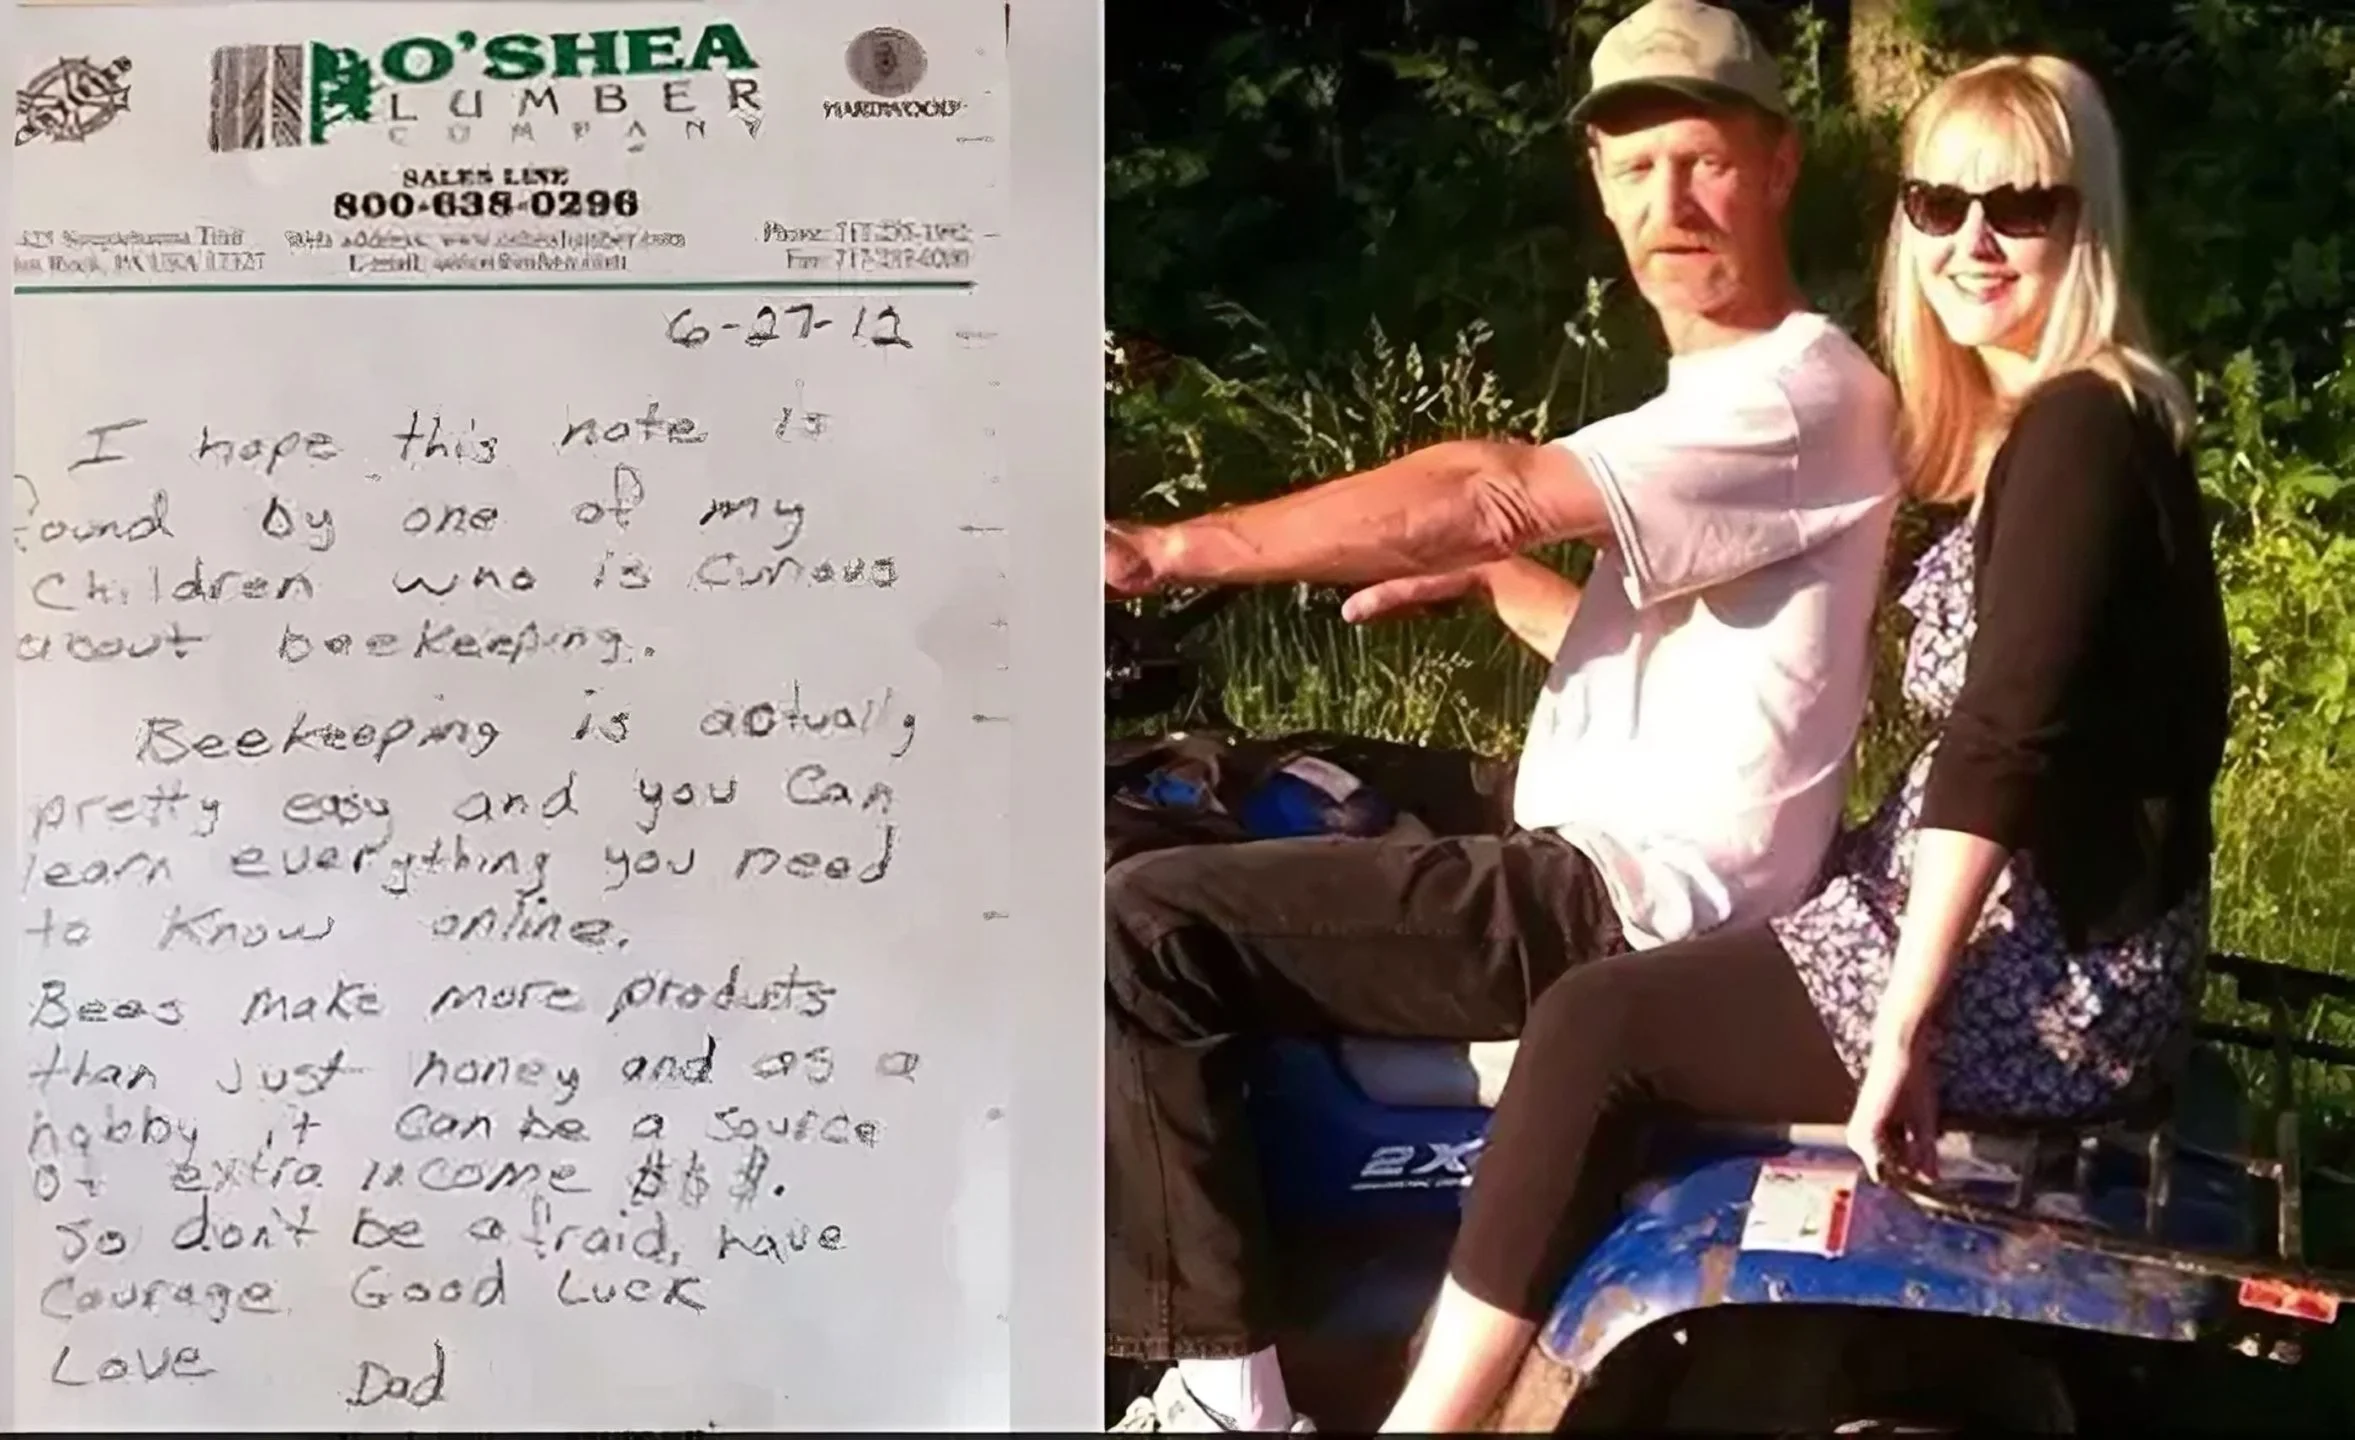 O'SHEA
LUMBER
COMPANY
HARDWOOD
SALES LINE
800-638-0296
6-27-12
I hope this note is
found by one of my
Children who is curious
about beekeeping.
Beekeeping is actually
pretty easy and you Can
learn everything you need
to Know online.
Bees make more products
than Just honey and as a
hobby it Can be a source
of extra income $$$.
So don't be afraid, have
Courage Good Luck
Love Dad
2X